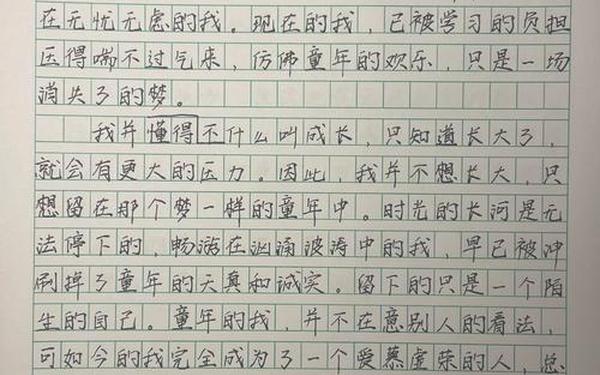 在无忧无虑的我。现在的我，已被学习的负担
压得喘不过气来，仿佛童年的欢乐，只是一场
消失了的梦。
我并懂得不什么叫成长，只知道长大了，
就会有更大的压力。因此，我并不想长大，只
想留在那个梦一样的童年中。时光的长河是无
法停下的，畅游在汹涌波涛中的我，早已被冲
刷掉了童年的天真和诚实。留下的只是一个陌
生的自己。童年的我，并不在意别人的看法，
可如今的我完全成为了一个爱慕虚荣的人，总